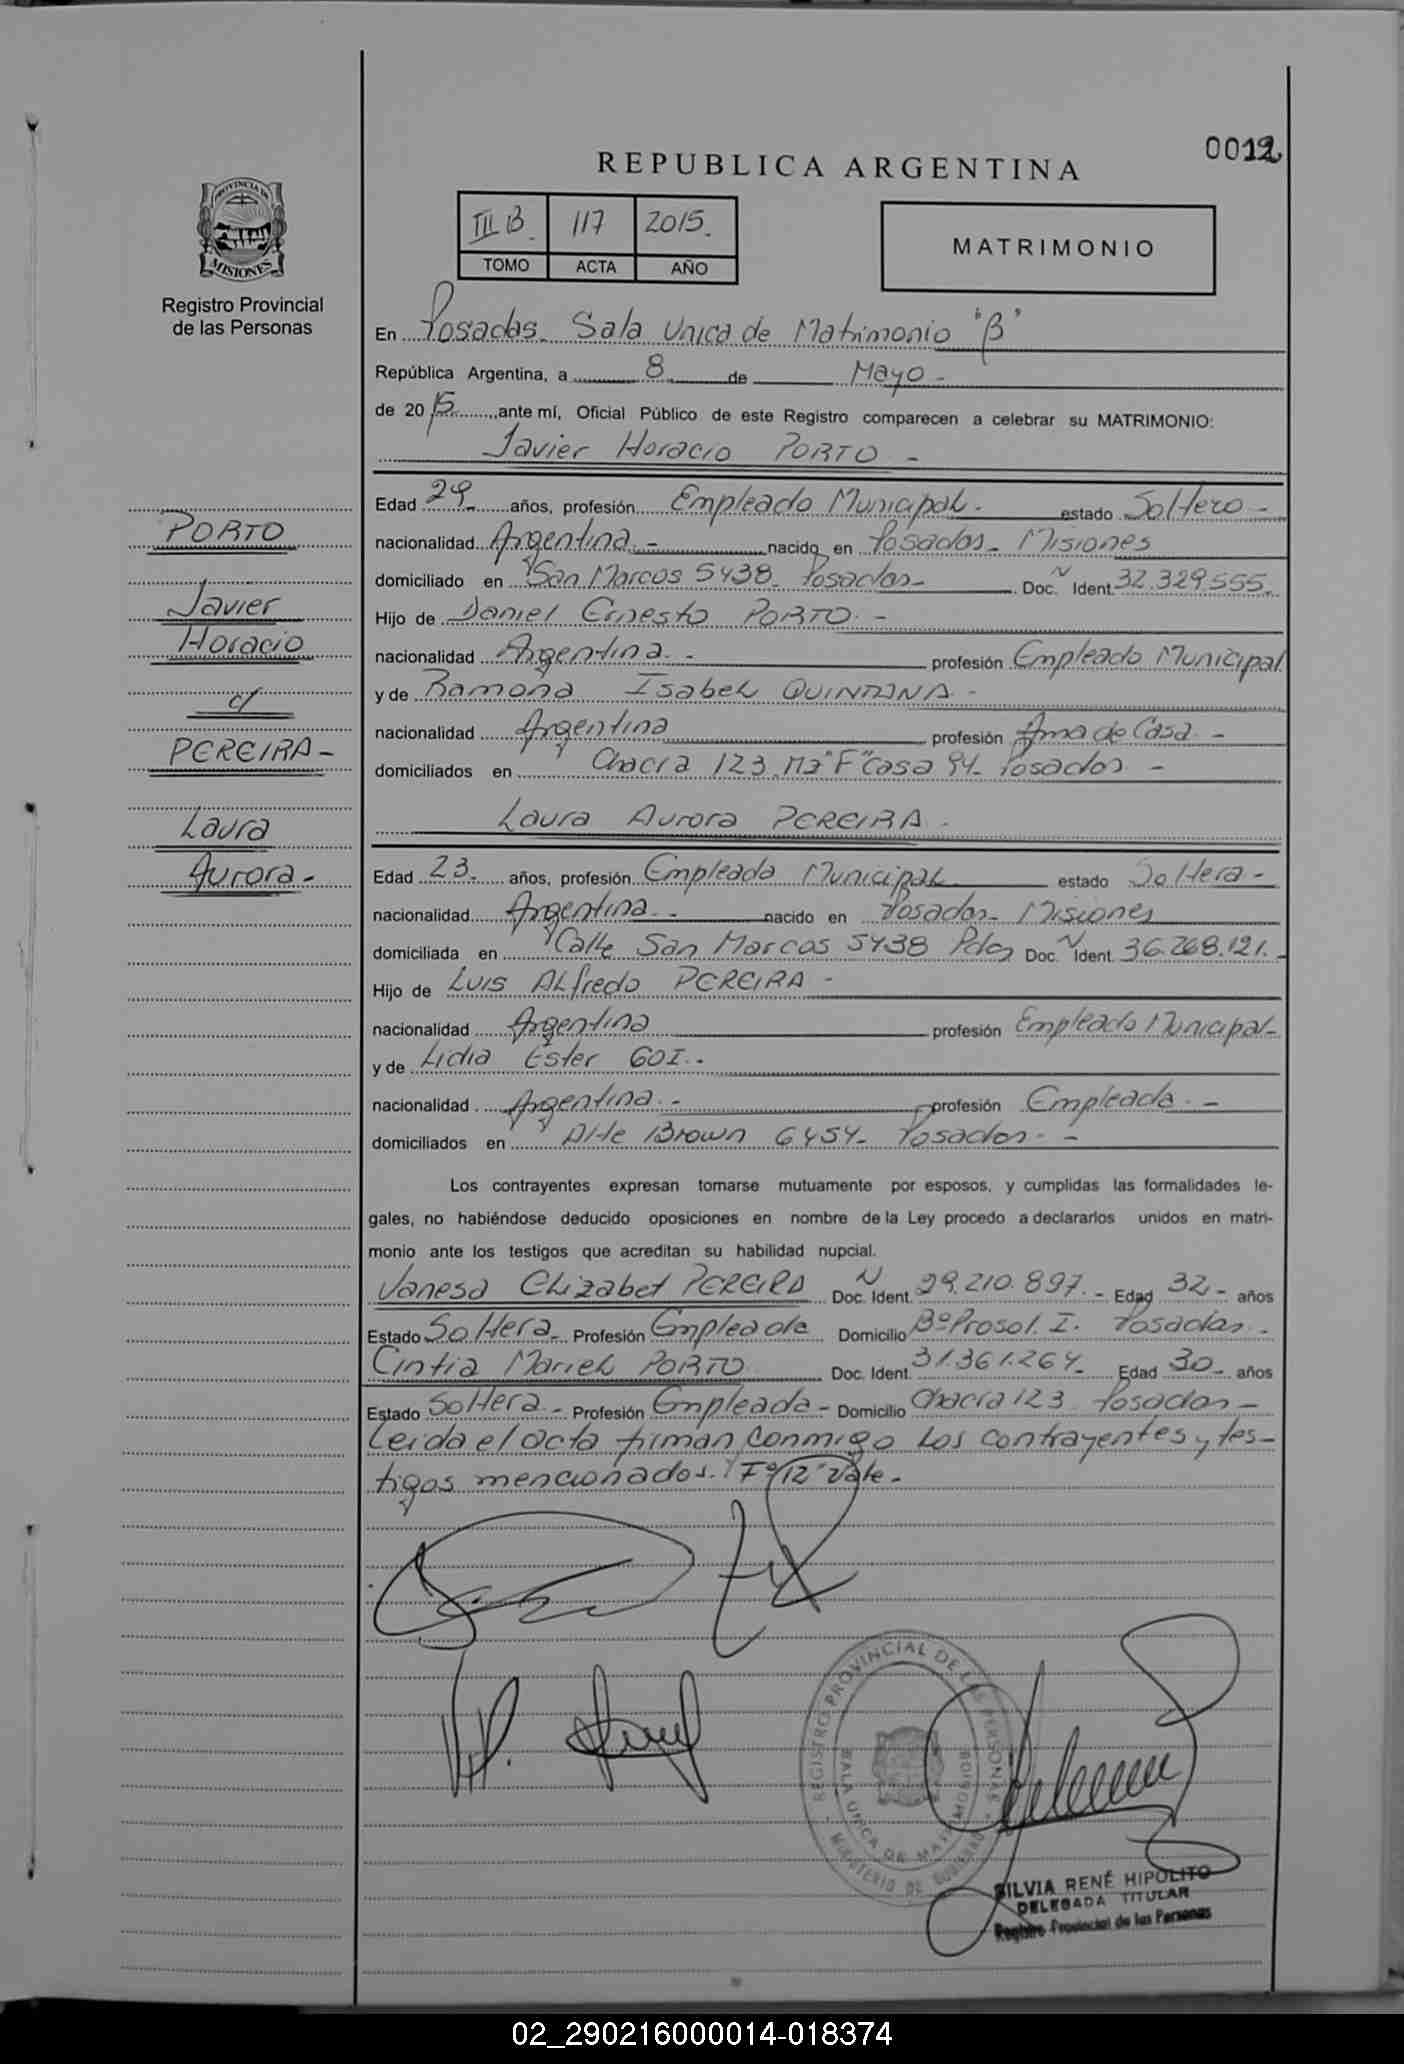 0012
REPUBLICA ARGENTINA
III B. 117 2015.
TOMO ACTA AÑO
MATRIMONIO
PROVINCIA DE
MISIONES
Registro Provincial
de las Personas
En Posadas. Sala Unica de Matrimonio "B"
República Argentina, a 8 de Mayo -
de 2015 ante mí, Oficial Público de este Registro comparecen a celebrar su MATRIMONIO:
Javier Horacio PORTO -
Edad 29 años, profesión Empleado Municipal - estado Soltero -
nacionalidad Argentina - nacido en Posadas - Misiones
domiciliado en San Marcos 5438 Posadas - Doc. N Ident. 32.329.555.
Hijo de Daniel Ernesto PORTO -
nacionalidad Argentina - profesión Empleado Municipal
y de Ramona Isabel QUINTANA -
nacionalidad Argentina profesión Ama de Casa -
domiciliados en Chacra 123 Mz "F" casa 94 - Posadas -
Laura Aurora PEREIRA -
Edad 23 - años, profesión Empleada Municipal estado Soltera -
nacionalidad Argentina - nacido en Posadas - Misiones
domiciliada en Calle San Marcos 5438 Pdas Doc. N Ident. 36.268.121. -
Hijo de Luis Alfredo PEREIRA -
nacionalidad Argentina profesión Empleado Municipal -
y de Lidia Ester GOI. -
nacionalidad Argentina - profesión Empleada -
domiciliados en Alte Brown 6454 - Posadas -
Los contrayentes expresan tomarse mutuamente por esposos, y cumplidas las formalidades le-
gales, no habiéndose deducido oposiciones en nombre de la Ley procedo a declararlos unidos en matri-
monio ante los testigos que acreditan su habilidad nupcial.
Vanesa Elizabet PEREIRA Doc. N Ident. 29.210.897. - Edad 32 - años
Estado Soltera - Profesión Empleada Domicilio Bº Prosol. I. Posadas -
Cintia Mariel PORTO Doc. Ident. 31.361.264 - Edad 30 - años
Estado Soltera - Profesión Empleada - Domicilio Chacra 123 Posadas -
Leida el acta firman conmigo los contrayentes y tes-
tigos mencionados. Fº "12" Vale -
PORTO
Javier
Horacio
c/
PEREIRA -
Laura
Aurora -
REGISTRO PROVINCIAL DE LAS PERSONAS
SALA UNICA DE MATRIMONIOS
MINISTERIO DE GOBIERNO
SILVIA RENÉ HIPOLITO
DELEGADA TITULAR
Registro Provincial de las Personas
02_290216000014-018374